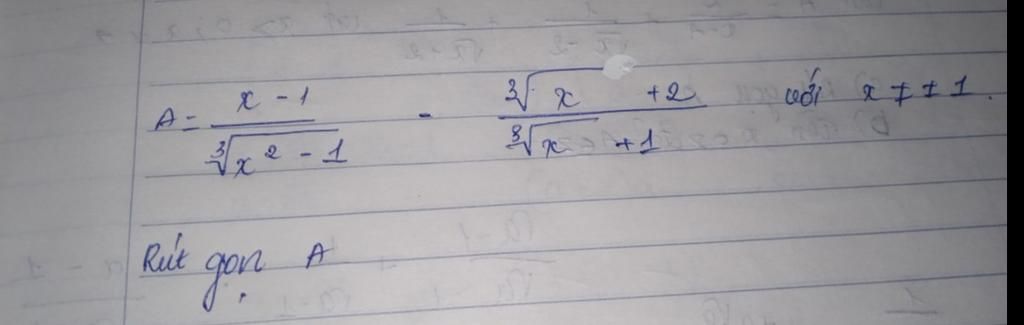 A = \frac{x - 1}{\sqrt[3]{x^2 - 1}} - \frac{\sqrt[3]{x} + 2}{\sqrt[3]{x} + 1} với x ≠ ± 1.
Rút gọn A